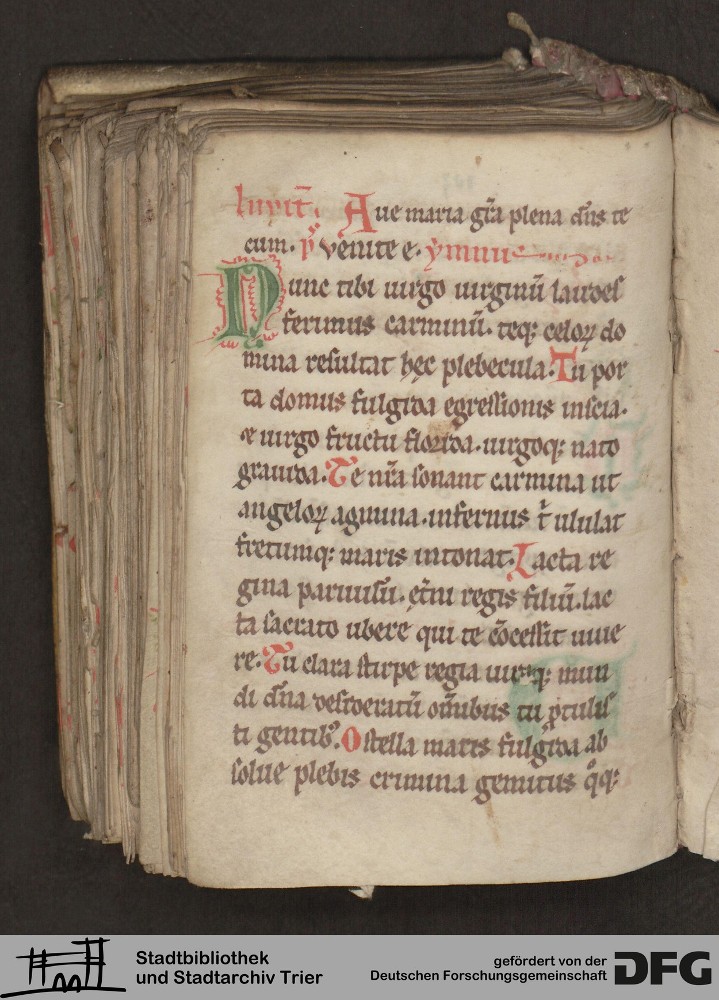 Inuit̄. Aue maria gr̄a plena dn̄s te
cum. p̄ venite e. ymnus
Nunc tibi uirgo uirginū laudes
ferimus carminū. teq; celoꝝ do
mina resultat hęc plebecula. Tu por
ta domus fulgida egressionis inscia.
& uirgo fructu florida. uirgoq; nato
grauida. Te nr̄a sonant carmina ut
angeloꝝ agmina. infernus t̄ ululat
fretumq; maris intonat. Lacta re
gina paruulū. et̄ni regis filiū. lac
ta sacrato ubere qui te cōcessit uiue
re. Tu clara stirpe regia uirūq; mun
di dn̄a desideratū om̄ibus tu ꝓtulis
ti gentibꝰ. O stella maris fulgida ab
solue plebis crimina gemitus qͦq;
Stadtbibliothek
und Stadtarchiv Trier
gefördert von der
Deutschen Forschungsgemeinschaft
DFG